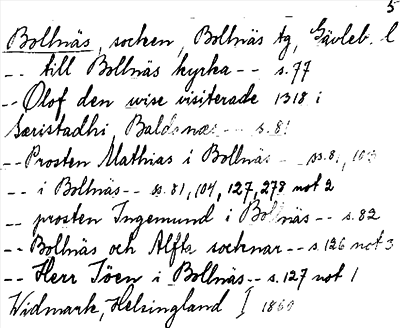 5
Bollnäs, socken, Bollnäs tg, Gävleb. l
-- till Bollnäs kyrka -- s. 77
-- Olof den wise visiterade 1318 i
Særistadhi, Baldsnæs -- s. 81
-- Prosten Mathias i Bollnäs -- ss. 81, 104
-- i Bollnäs -- ss. 81, 104, 127, 278 not 2
-- prosten Ingemund i Bollnäs -- s. 82
-- Bollnäs och Alfta socknar -- s. 126 not 3
-- Herr Jöen i Bollnäs -- s. 127 not 1
Widmark, Helsingland I 1860